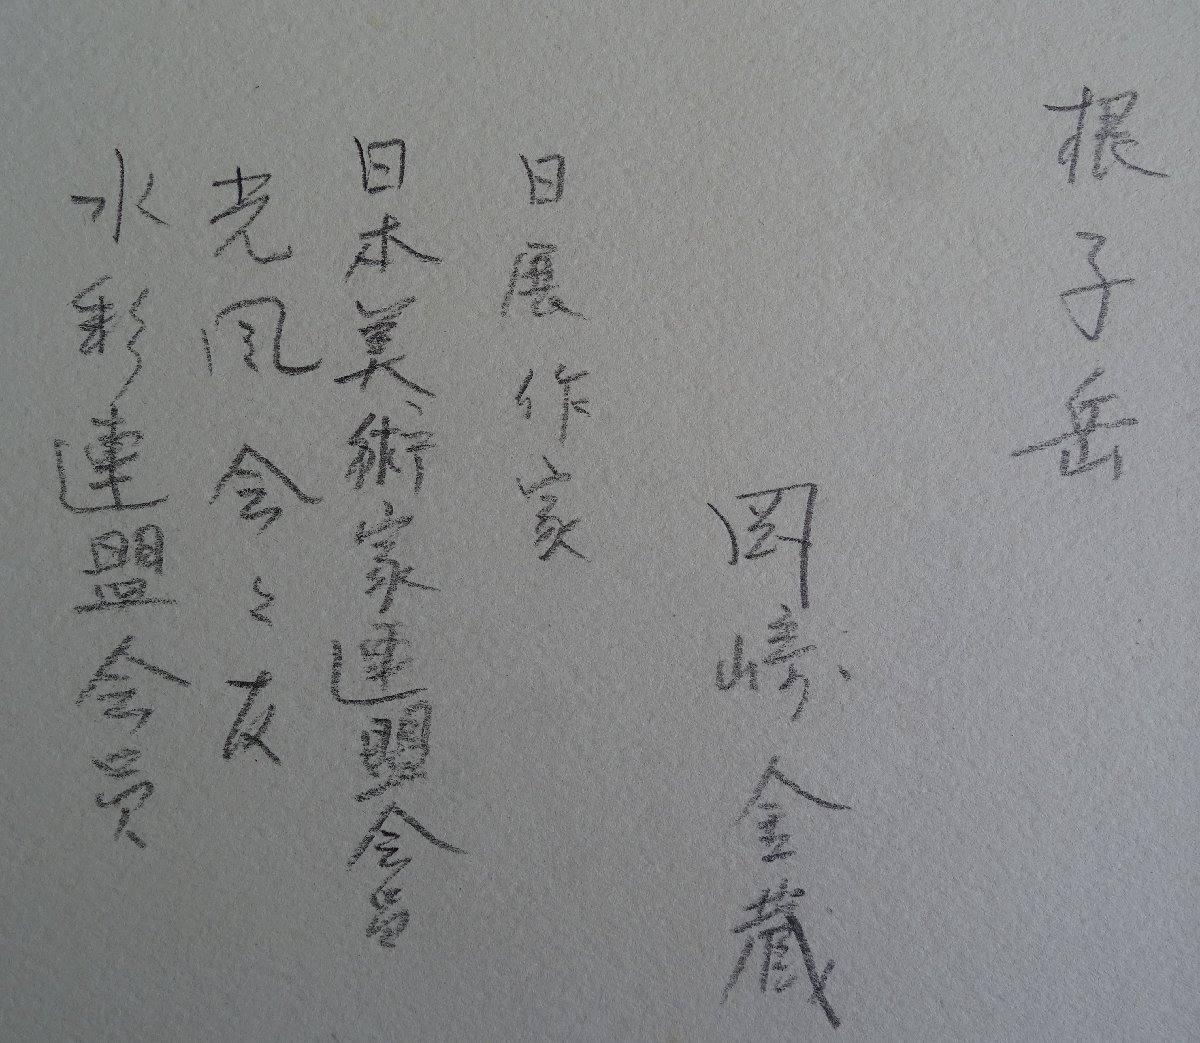 根子岳
岡崎金蔵
日展作家
日本美術家連盟会員
光風会々友
水彩連盟会員